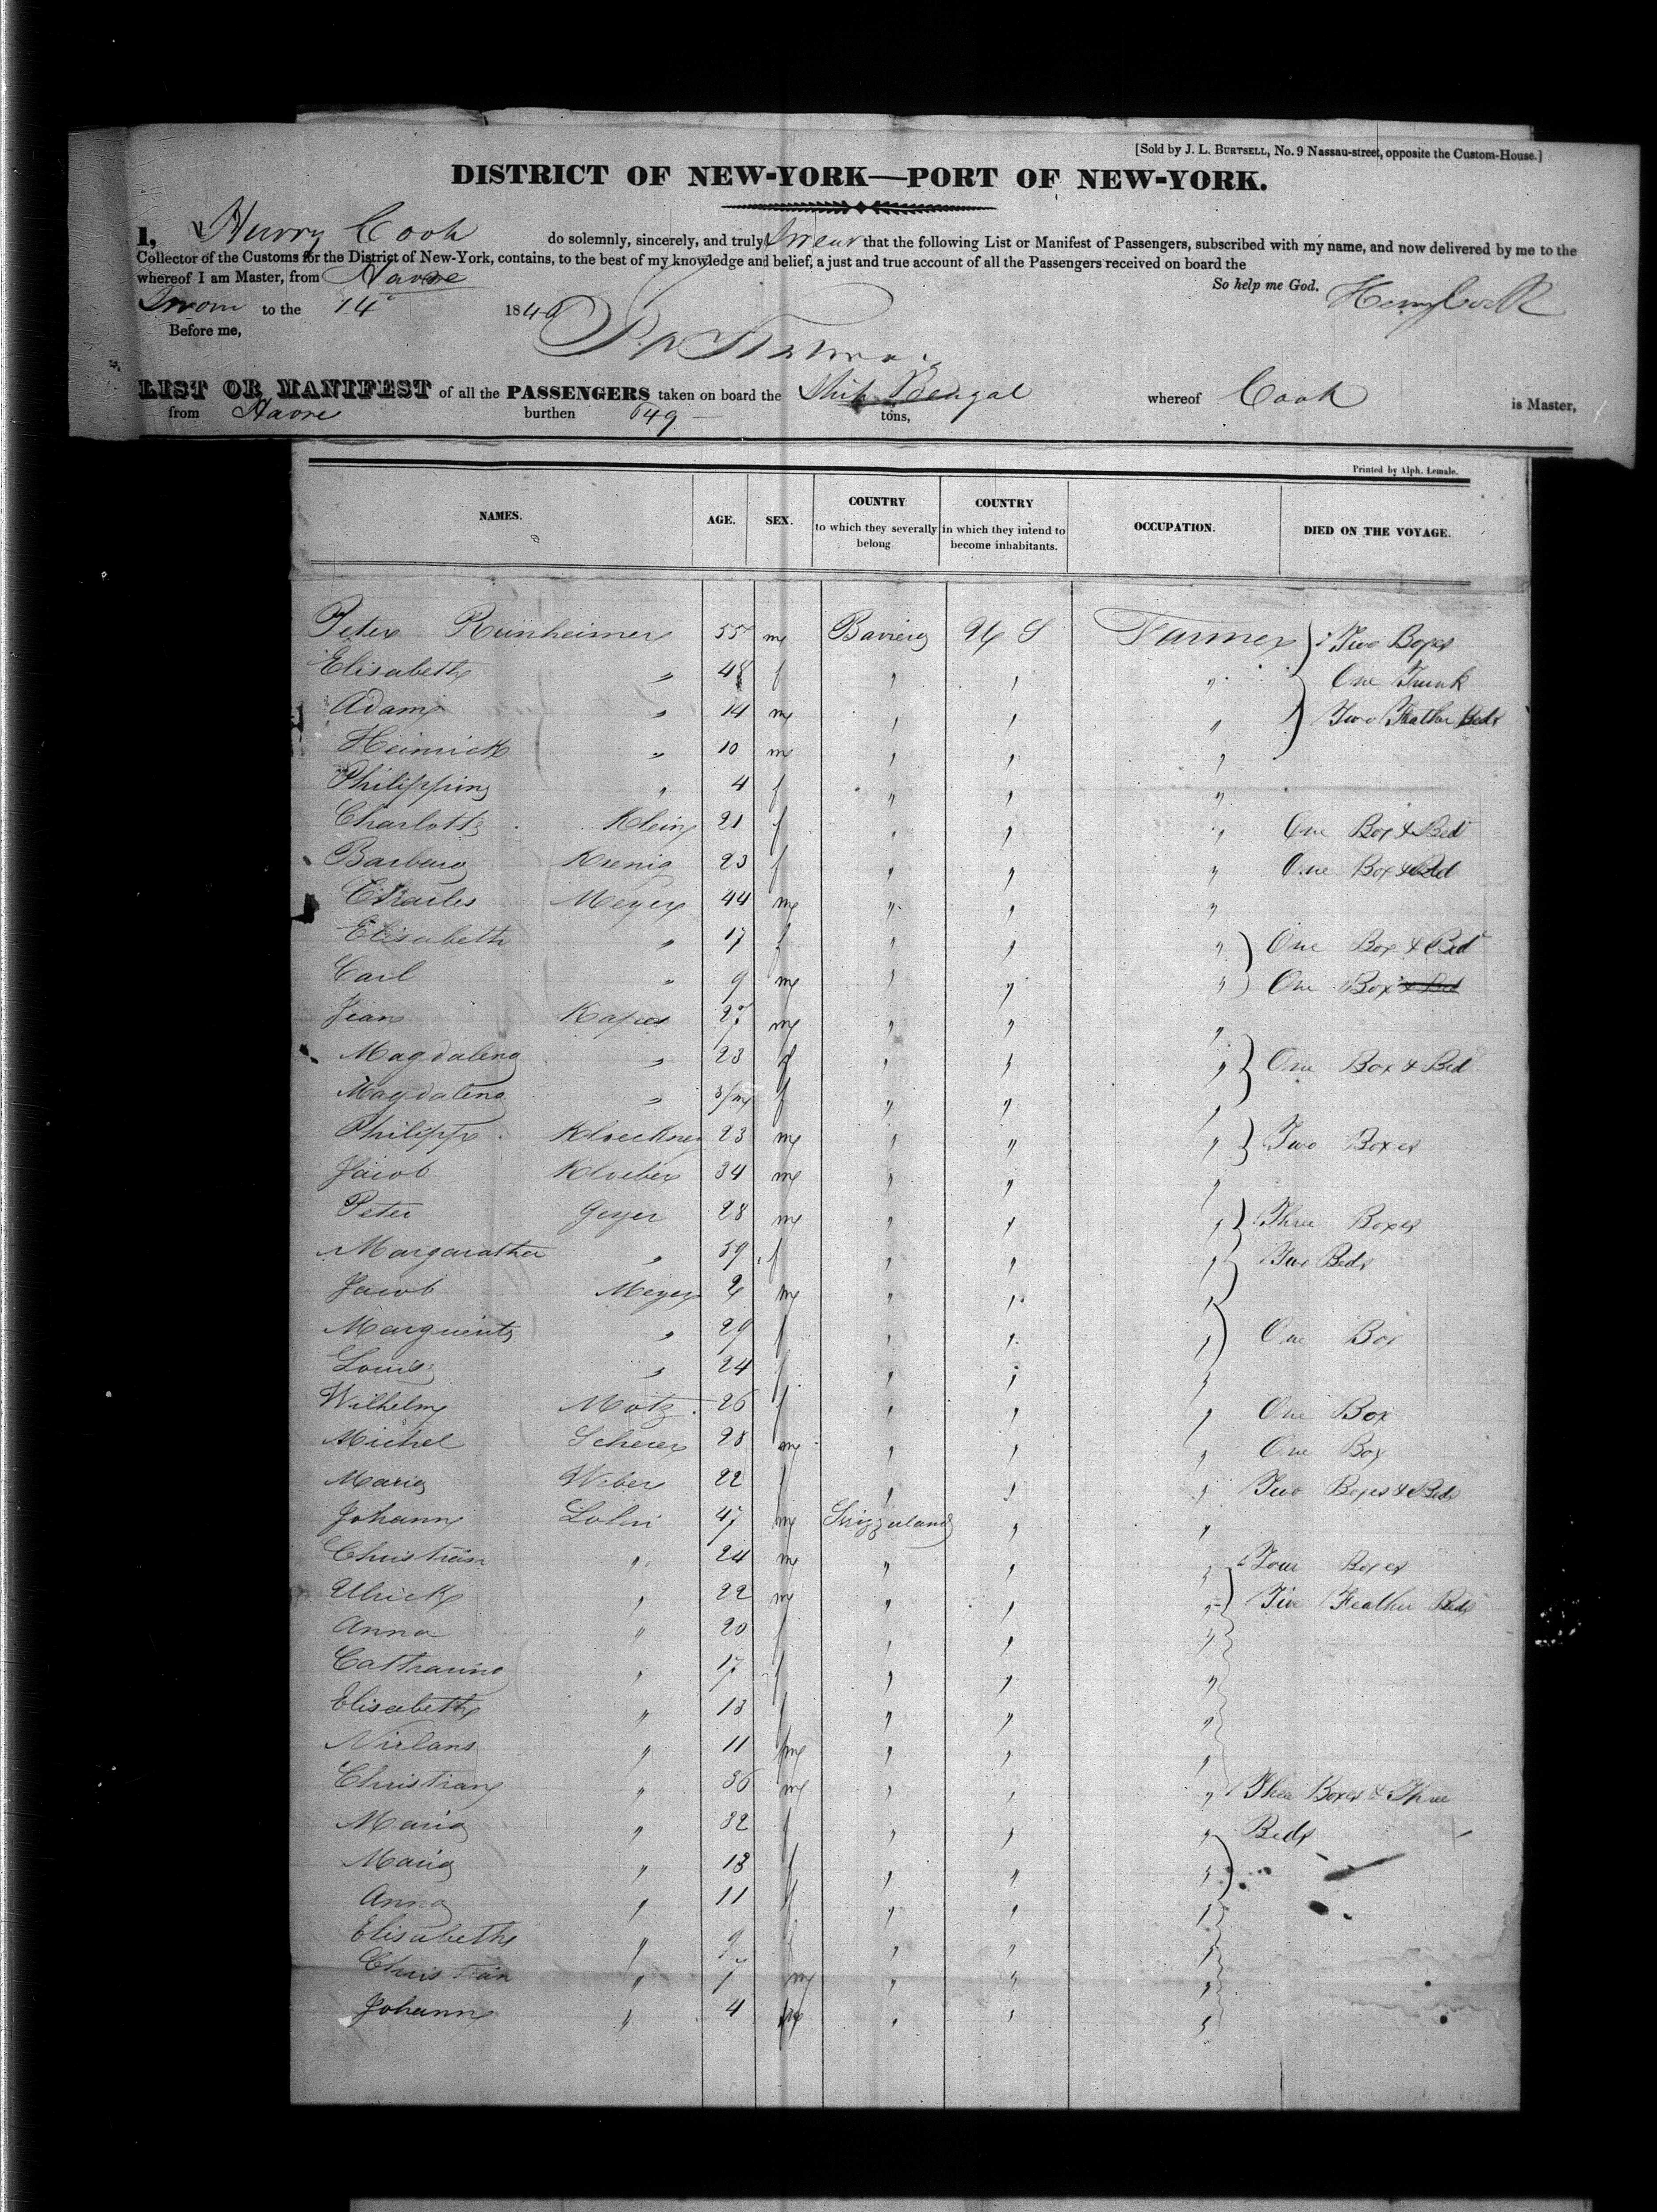 [Sold by J. L. BURTSELL, No. 9 Nassau-street, opposite the Custom-House.]
DISTRICT OF NEW-YORK—PORT OF NEW-YORK.
I, Henry Cook do solemnly, sincerely, and truly swear that the following List or Manifest of Passengers, subscribed with my name, and now delivered by me to the
Collector of the Customs for the District of New-York, contains, to the best of my knowledge and belief, a just and true account of all the Passengers received on board the
whereof I am Master, from Havre So help me God. Henry Cook
Sworn to the 14 1840
Before me,
LIST OR MANIFEST of all the PASSENGERS taken on board the Ship Bengal whereof Cook is Master,
from Havre burthen 649 tons,
Printed by Alph. Lemale.
NAMES. AGE. SEX. COUNTRY to which they severally belong COUNTRY in which they intend to become inhabitants. OCCUPATION. DIED ON THE VOYAGE.
Peter Reinheimer 55 m Baviera U S Farmer Two Boxes
Elisabeth " 48 f " " " One Trunk
Adam " 14 m " " " Two Feather Beds
Heinrich " 10 m " " "
Philippina " 4 f " " "
Charlotte Klein 21 f " " " One Box & Bed
Barbara Koenig 23 f " " " One Box & Bed
Charles Meyer 44 m " " "
Elisabeth " 17 f " " " One Box & Bed
Carl " 9 m " " " One Box & Bed
Jean 27 m " " "
Magdalena " 23 f " " " One Box & Bed
Magdalena " 3/m f " " "
Philipp Kloeckner 23 m " " " Two Boxes
Jacob Kloeber 34 m " " "
Peter Geyer 28 m " " " Three Boxes
Margaratha " 59 f " " " Two Beds
Jacob Meyer m " " "
Marguerite " 29 f " " " One Box
Louis " 24 f " " "
Wilhelm Motz 26 f " " " One Box
Michel Scherer 28 m " " " One Box
Maria Weber 22 f " " " Two Boxes & Beds
Johann 47 m Swizzerland " "
Christian " 24 m " " " Four Boxes
Ulrich " 22 m " " " Five Feather Beds
Anna " 20 f " " "
Catharina " 17 f " " "
Elisabeth " 13 f " " "
" 11 m " " "
Christian " 36 m " " " Three Boxes & Three
Maria " 32 f " " " Beds
Maria " 13 f " " "
Anna " 11 f " " "
Elisabeth " 9 f " " "
Christian " 7 m " " "
Johann " 4 m " " "